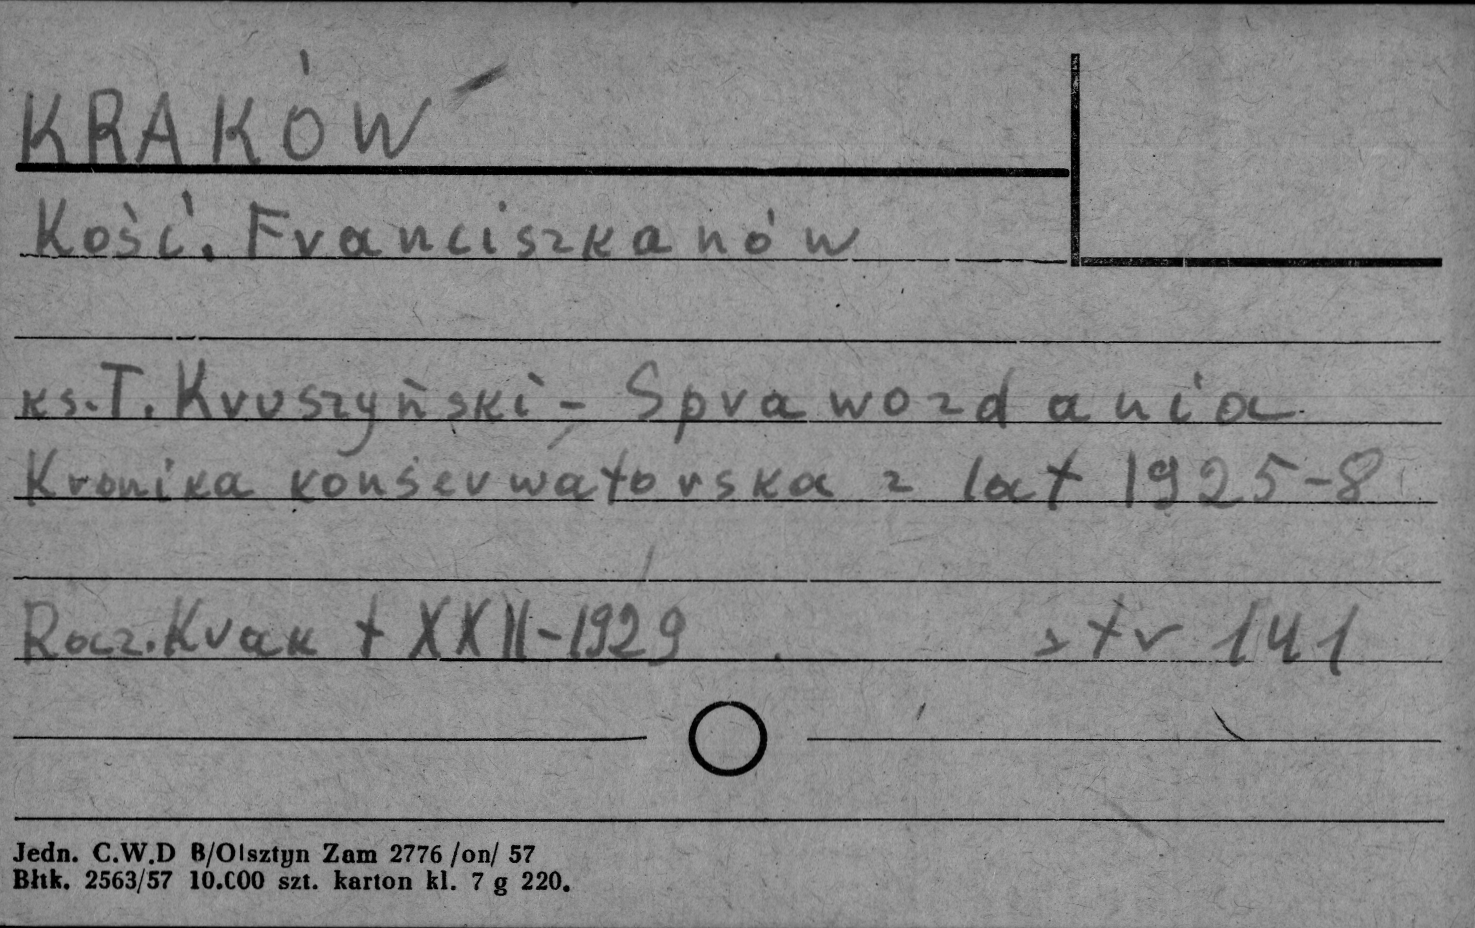 KRAKÓW
Kość. Franciszkanów
ks. T. Kruszyński - Sprawozdania
Kronika konserwatorska z lat 1925-8
Rocz. Krak t XXII-1929 str 141
Jedn. C.W.D B/Olsztyn Zam 2776 /on/ 57
Błtk. 2563/57 10.000 szt. karton kl. 7 g 220.